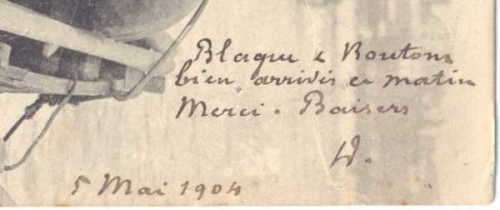 Blague & Boutons
bien arrivés ce matin
Merci. Baisers
W.
5 Mai 1904